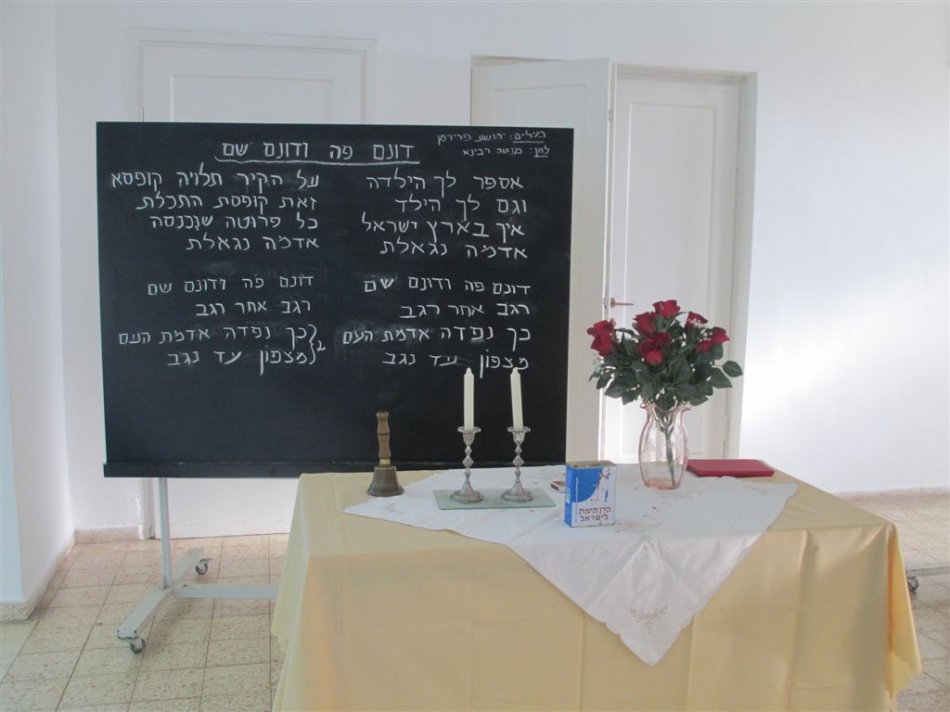 דונם פה ודונם שם
מילים: יהושע פרידמן
לחן: מנשה רבינא
אספר לך הילדה
וגם לך הילד
איך בארץ ישראל
אדמה נגאלת
דונם פה ודונם שם
רגב אחר רגב
כך נפדה אדמת העם
מצפון עד נגב
על הקיר תלויה קופסא
זאת קופסת התכלת
כל פרוטה שנכנסה
אדמה נגאלת
דונם פה ודונם שם
רגב אחר רגב
כך נפדה אדמת העם
מצפון עד נגב
2
קרן קימת
לישראל